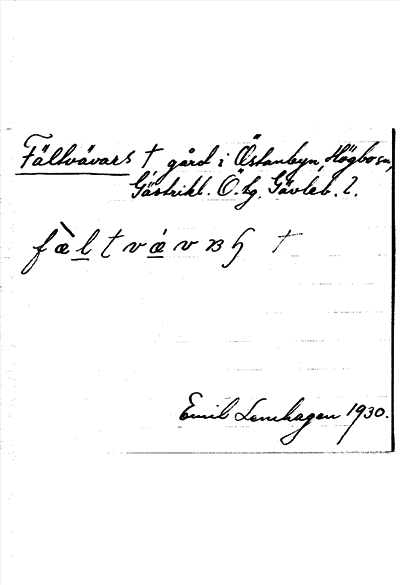 Fältvävars † gård i Östanbyn, Högbo sn,
Gästrikl. Ö. tg, Gävleb. l.
fæ̀ltvǽv
Emil Lenhagen 1930.